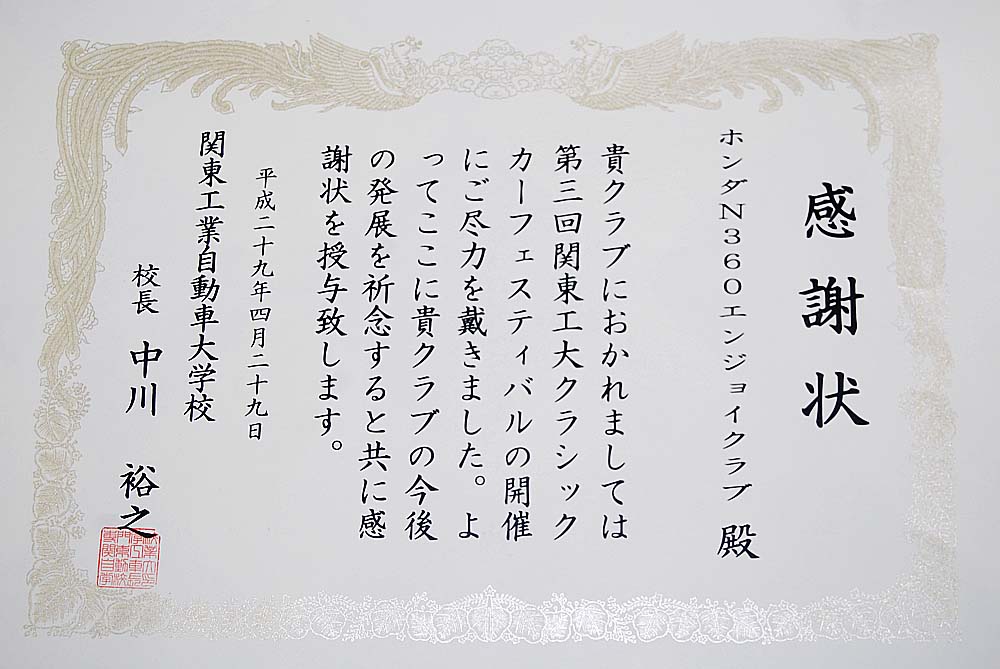 感謝状
ホンダN360エンジョイクラブ 殿
貴クラブにおかれましては
第三回関東工大クラシック
カーフェスティバルの開催
にご尽力を戴きました。よ
ってここに貴クラブの今後
の発展を祈念すると共に感
謝状を授与致します。
平成二十九年四月二十九日
関東工業自動車大学校
校長 中川 裕之